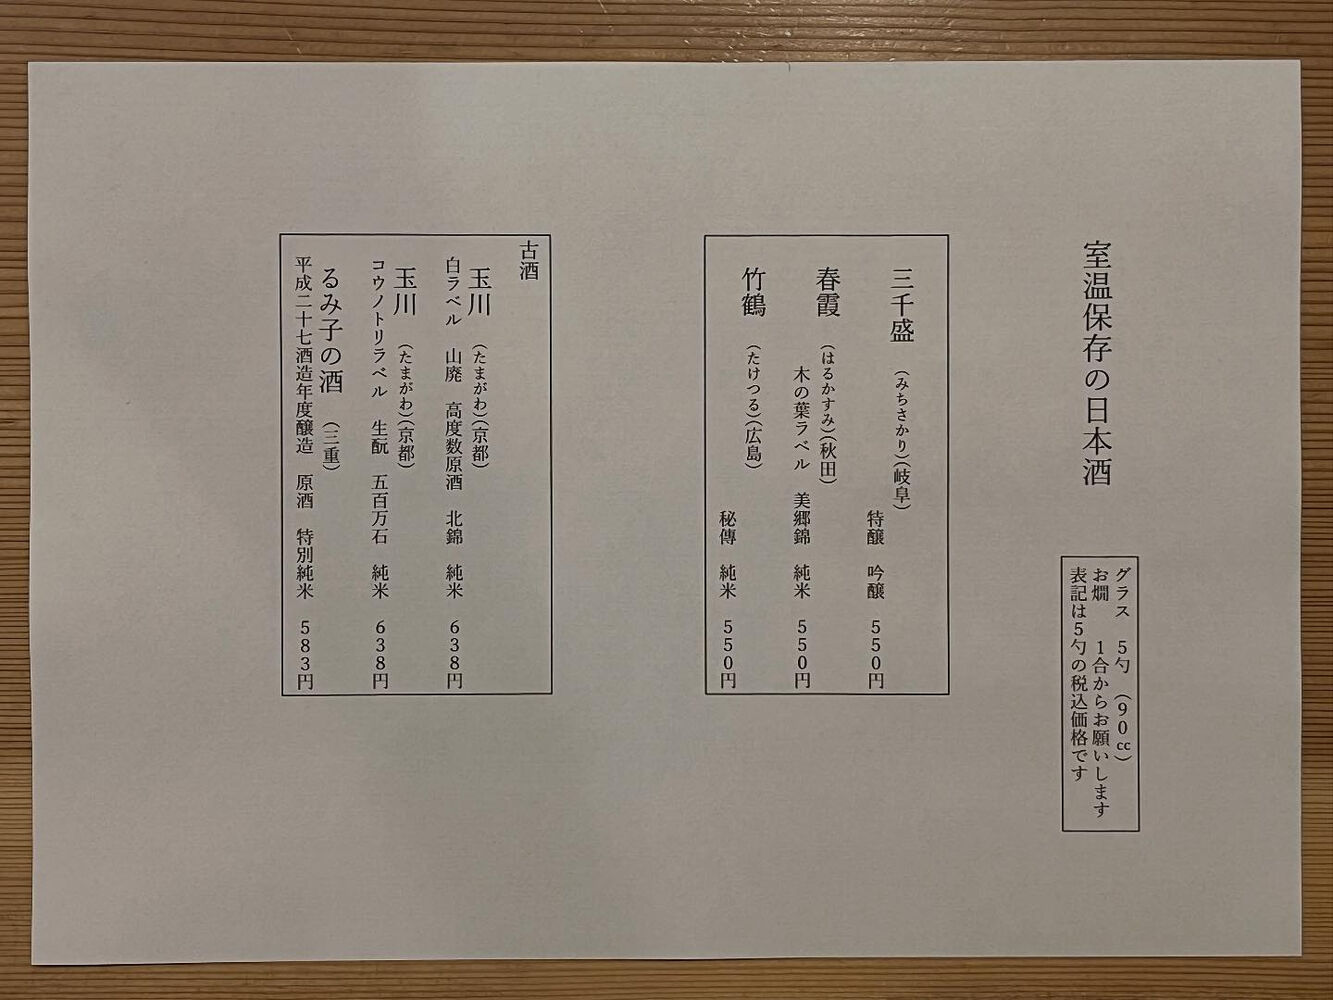 室温保存の日本酒
グラス　5勺　（90㏄）
お燗　1合からお願いします
表記は5勺の税込価格です
三千盛　（みちさかり）（岐阜）
特醸　吟醸　550円
春霞　（はるかすみ）（秋田）
木の葉ラベル　美郷錦　純米　550円
竹鶴　（たけつる）（広島）
秘傳　純米　550円
古酒
玉川　（たまがわ）（京都）
白ラベル　山廃　高度数原酒　北錦　純米　638円
玉川　（たまがわ）（京都）
コウノトリラベル　生酛　五百万石　純米　638円
るみ子の酒　（三重）
平成二十七酒造年度醸造　原酒　特別純米　583円